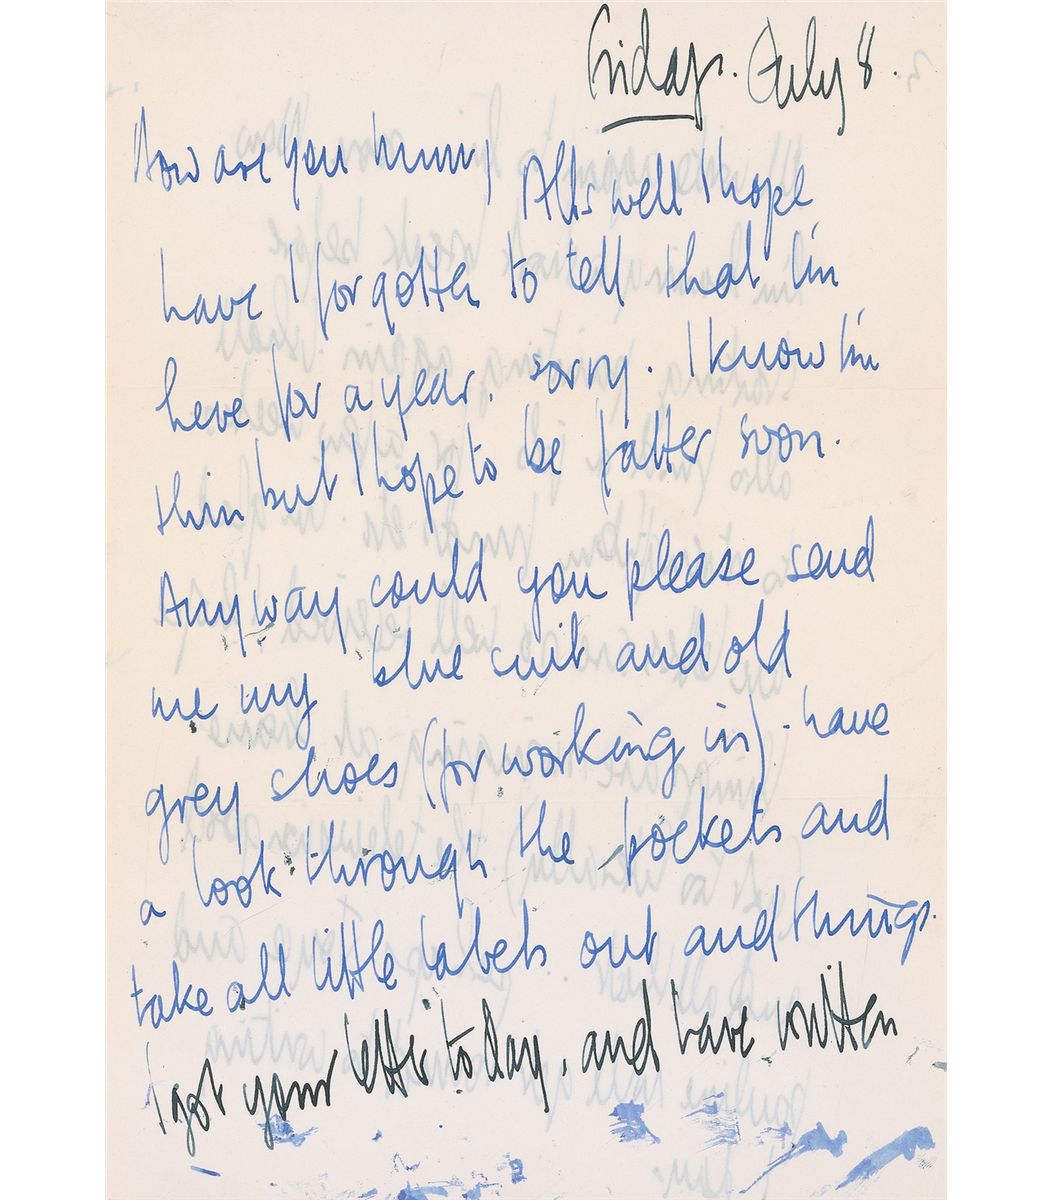 Friday. July 8.
How are you mum, All's well I hope
have I forgotten to tell that I'm
here for a year. sorry. I know I'm
thin but I hope to be fatter soon.
Anyway could you please send
me my blue suit and old
grey shoes (for working in). have
a look through the pockets and
take all little labels out and things.
I got your letter today, and have written